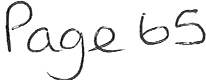 Page 65